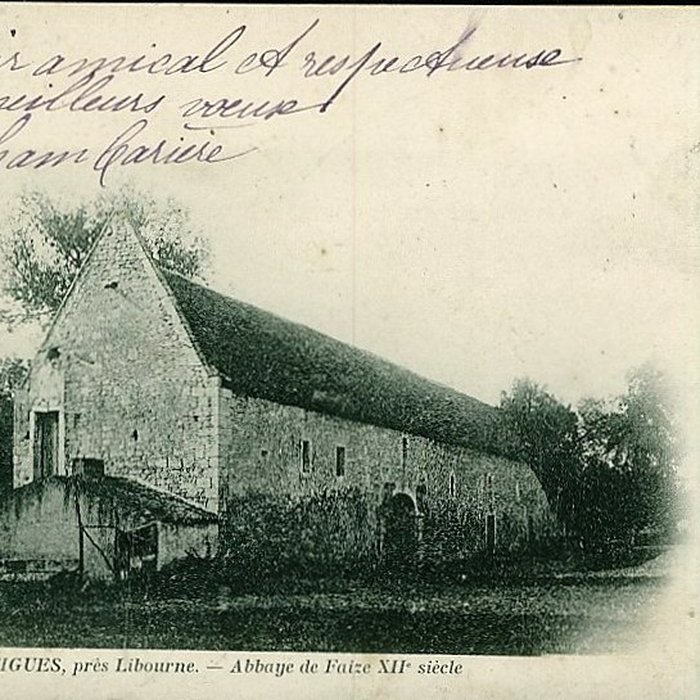 amical et respectueuse
meilleurs vœux
Carière
IGUES, près Libourne. — Abbaye de Faize XIIe siècle